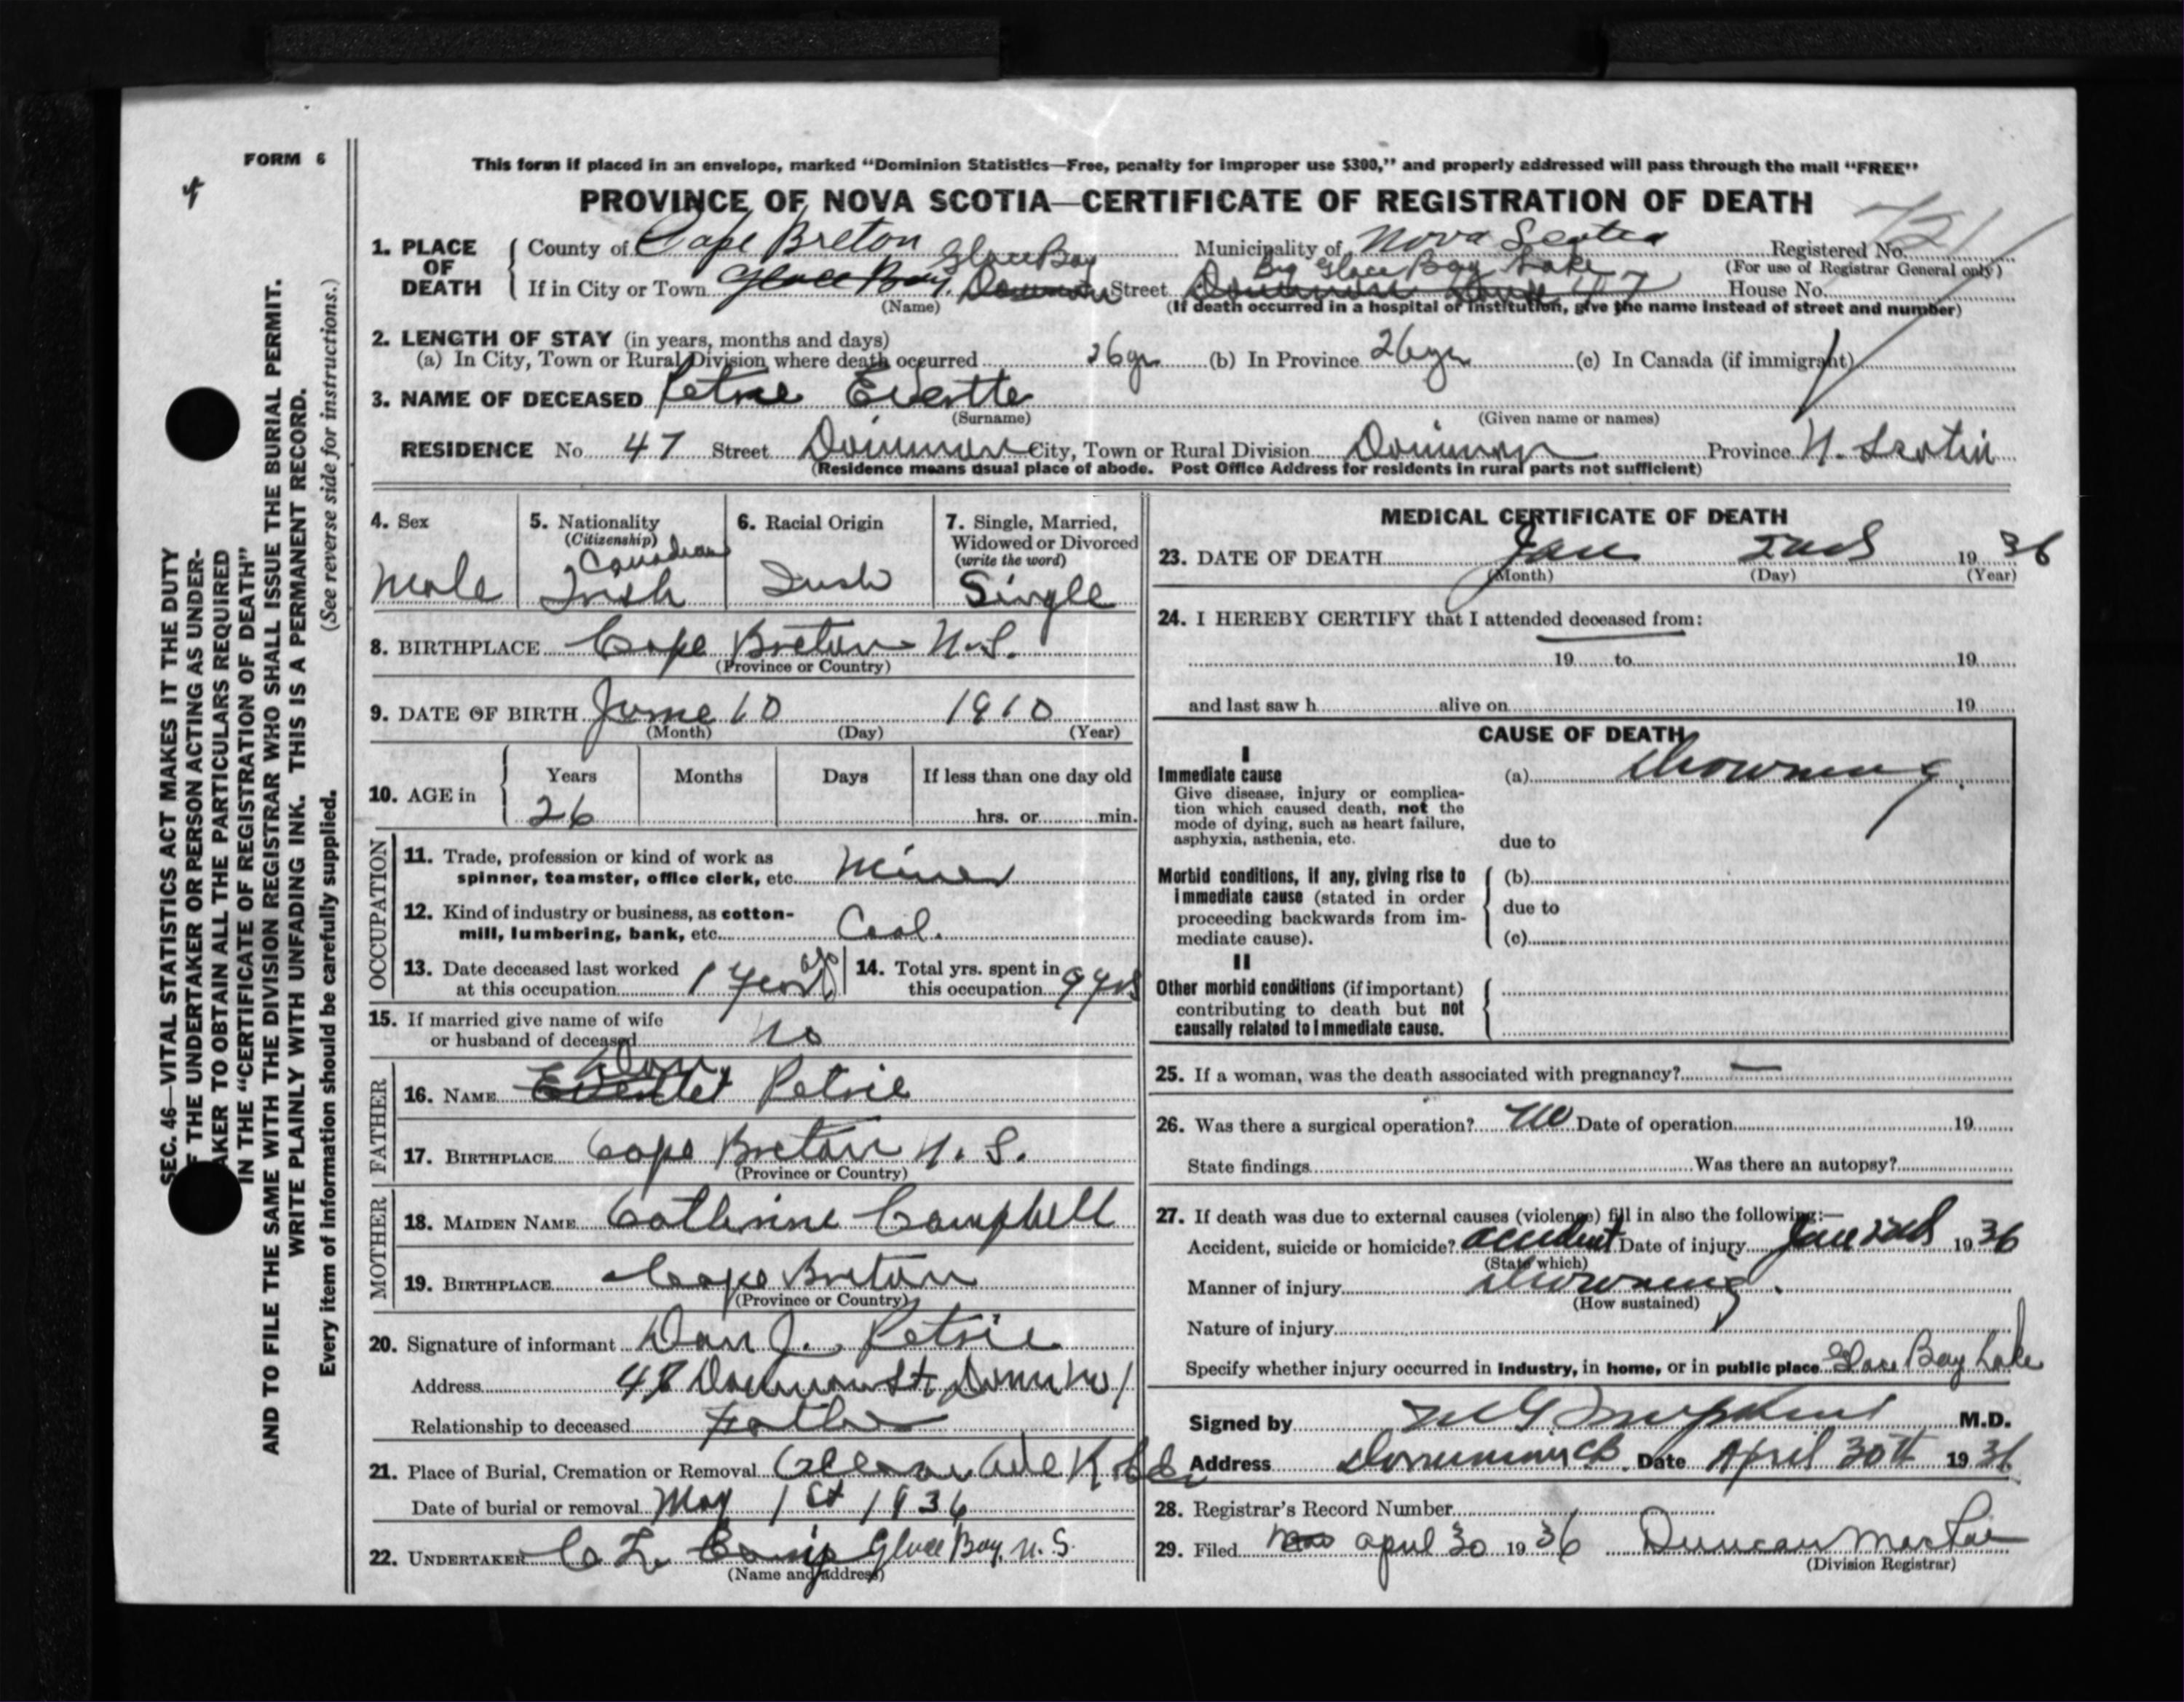 FORM 6
4
SEC. 46—VITAL STATISTICS ACT MAKES IT THE DUTY
F THE UNDERTAKER OR PERSON ACTING AS UNDER-
AKER TO OBTAIN ALL THE PARTICULARS REQUIRED
IN THE "CERTIFICATE OF REGISTRATION OF DEATH"
AND TO FILE THE SAME WITH THE DIVISION REGISTRAR WHO SHALL ISSUE THE BURIAL PERMIT.
WRITE PLAINLY WITH UNFADING INK. THIS IS A PERMANENT RECORD.
Every item of information should be carefully supplied. (See reverse side for instructions.)
This form if placed in an envelope, marked "Dominion Statistics—Free, penalty for improper use $300," and properly addressed will pass through the mail "FREE"
PROVINCE OF NOVA SCOTIA—CERTIFICATE OF REGISTRATION OF DEATH
721
1. PLACE OF DEATH
County of Cape Breton Municipality of Nova Scotia Registered No.
(For use of Registrar General only)
Glace Bay
Big Glace Bay Lake
If in City or Town Glace Bay, Dominion Street Dominion 47 House No.
(Name) (If death occurred in a hospital or institution, give the name instead of street and number)
2. LENGTH OF STAY (in years, months and days)
(a) In City, Town or Rural Division where death occurred 26yr (b) In Province 26yr (c) In Canada (if immigrant)
3. NAME OF DECEASED Petrie Everette
(Surname) (Given name or names)
RESIDENCE No. 47 Street Dominion City, Town or Rural Division Dominion Province N. Scotia
(Residence means usual place of abode. Post Office Address for residents in rural parts not sufficient)
4. Sex
Male
5. Nationality
(Citizenship)
Canadian
Irish
6. Racial Origin
Irish
7. Single, Married,
Widowed or Divorced
(write the word)
Single
8. BIRTHPLACE Cape Breton N.S.
(Province or Country)
9. DATE OF BIRTH June 10 1910
(Month) (Day) (Year)
10. AGE in
Years Months Days If less than one day old
26 hrs. or min.
OCCUPATION
11. Trade, profession or kind of work as
spinner, teamster, office clerk, etc. Miner
12. Kind of industry or business, as cotton-
mill, lumbering, bank, etc. Coal.
13. Date deceased last worked
at this occupation 1 Year ago
14. Total yrs. spent in
this occupation 9 yrs
15. If married give name of wife
or husband of deceased no
FATHER
16. NAME Dan Petrie
17. BIRTHPLACE Cape Breton N. S.
(Province or Country)
MOTHER
18. MAIDEN NAME Catherine Campbell
19. BIRTHPLACE Cape Breton
(Province or Country)
20. Signature of informant Dan J. Petrie
Address 47 Dominion St, Dominion
Relationship to deceased Father
21. Place of Burial, Cremation or Removal
Date of burial or removal May 1st 1936
22. UNDERTAKER Glace Bay, N. S.
(Name and address)
MEDICAL CERTIFICATE OF DEATH
23. DATE OF DEATH Jan 2nd 1936
(Month) (Day) (Year)
24. I HEREBY CERTIFY that I attended deceased from:
19 to 19
and last saw h alive on 19
CAUSE OF DEATH
I
Immediate cause
Give disease, injury or complica-
tion which caused death, not the
mode of dying, such as heart failure,
asphyxia, asthenia, etc.
(a) drowning
due to
Morbid conditions, if any, giving rise to
immediate cause (stated in order
proceeding backwards from im-
mediate cause).
(b)
due to
(c)
II
Other morbid conditions (if important)
contributing to death but not
causally related to immediate cause.
25. If a woman, was the death associated with pregnancy? —
26. Was there a surgical operation? no Date of operation 19
State findings Was there an autopsy?
27. If death was due to external causes (violence) fill in also the following:—
Accident, suicide or homicide? accident Date of injury Jan 1936
(State which)
Manner of injury drowning.
(How sustained)
Nature of injury
Specify whether injury occurred in industry, in home, or in public place Glace Bay Lake
Signed by M.D.
Address Dominion CB. Date April 30th 1936
28. Registrar's Record Number
29. Filed April 30 1936 Duncan MacRae
(Division Registrar)